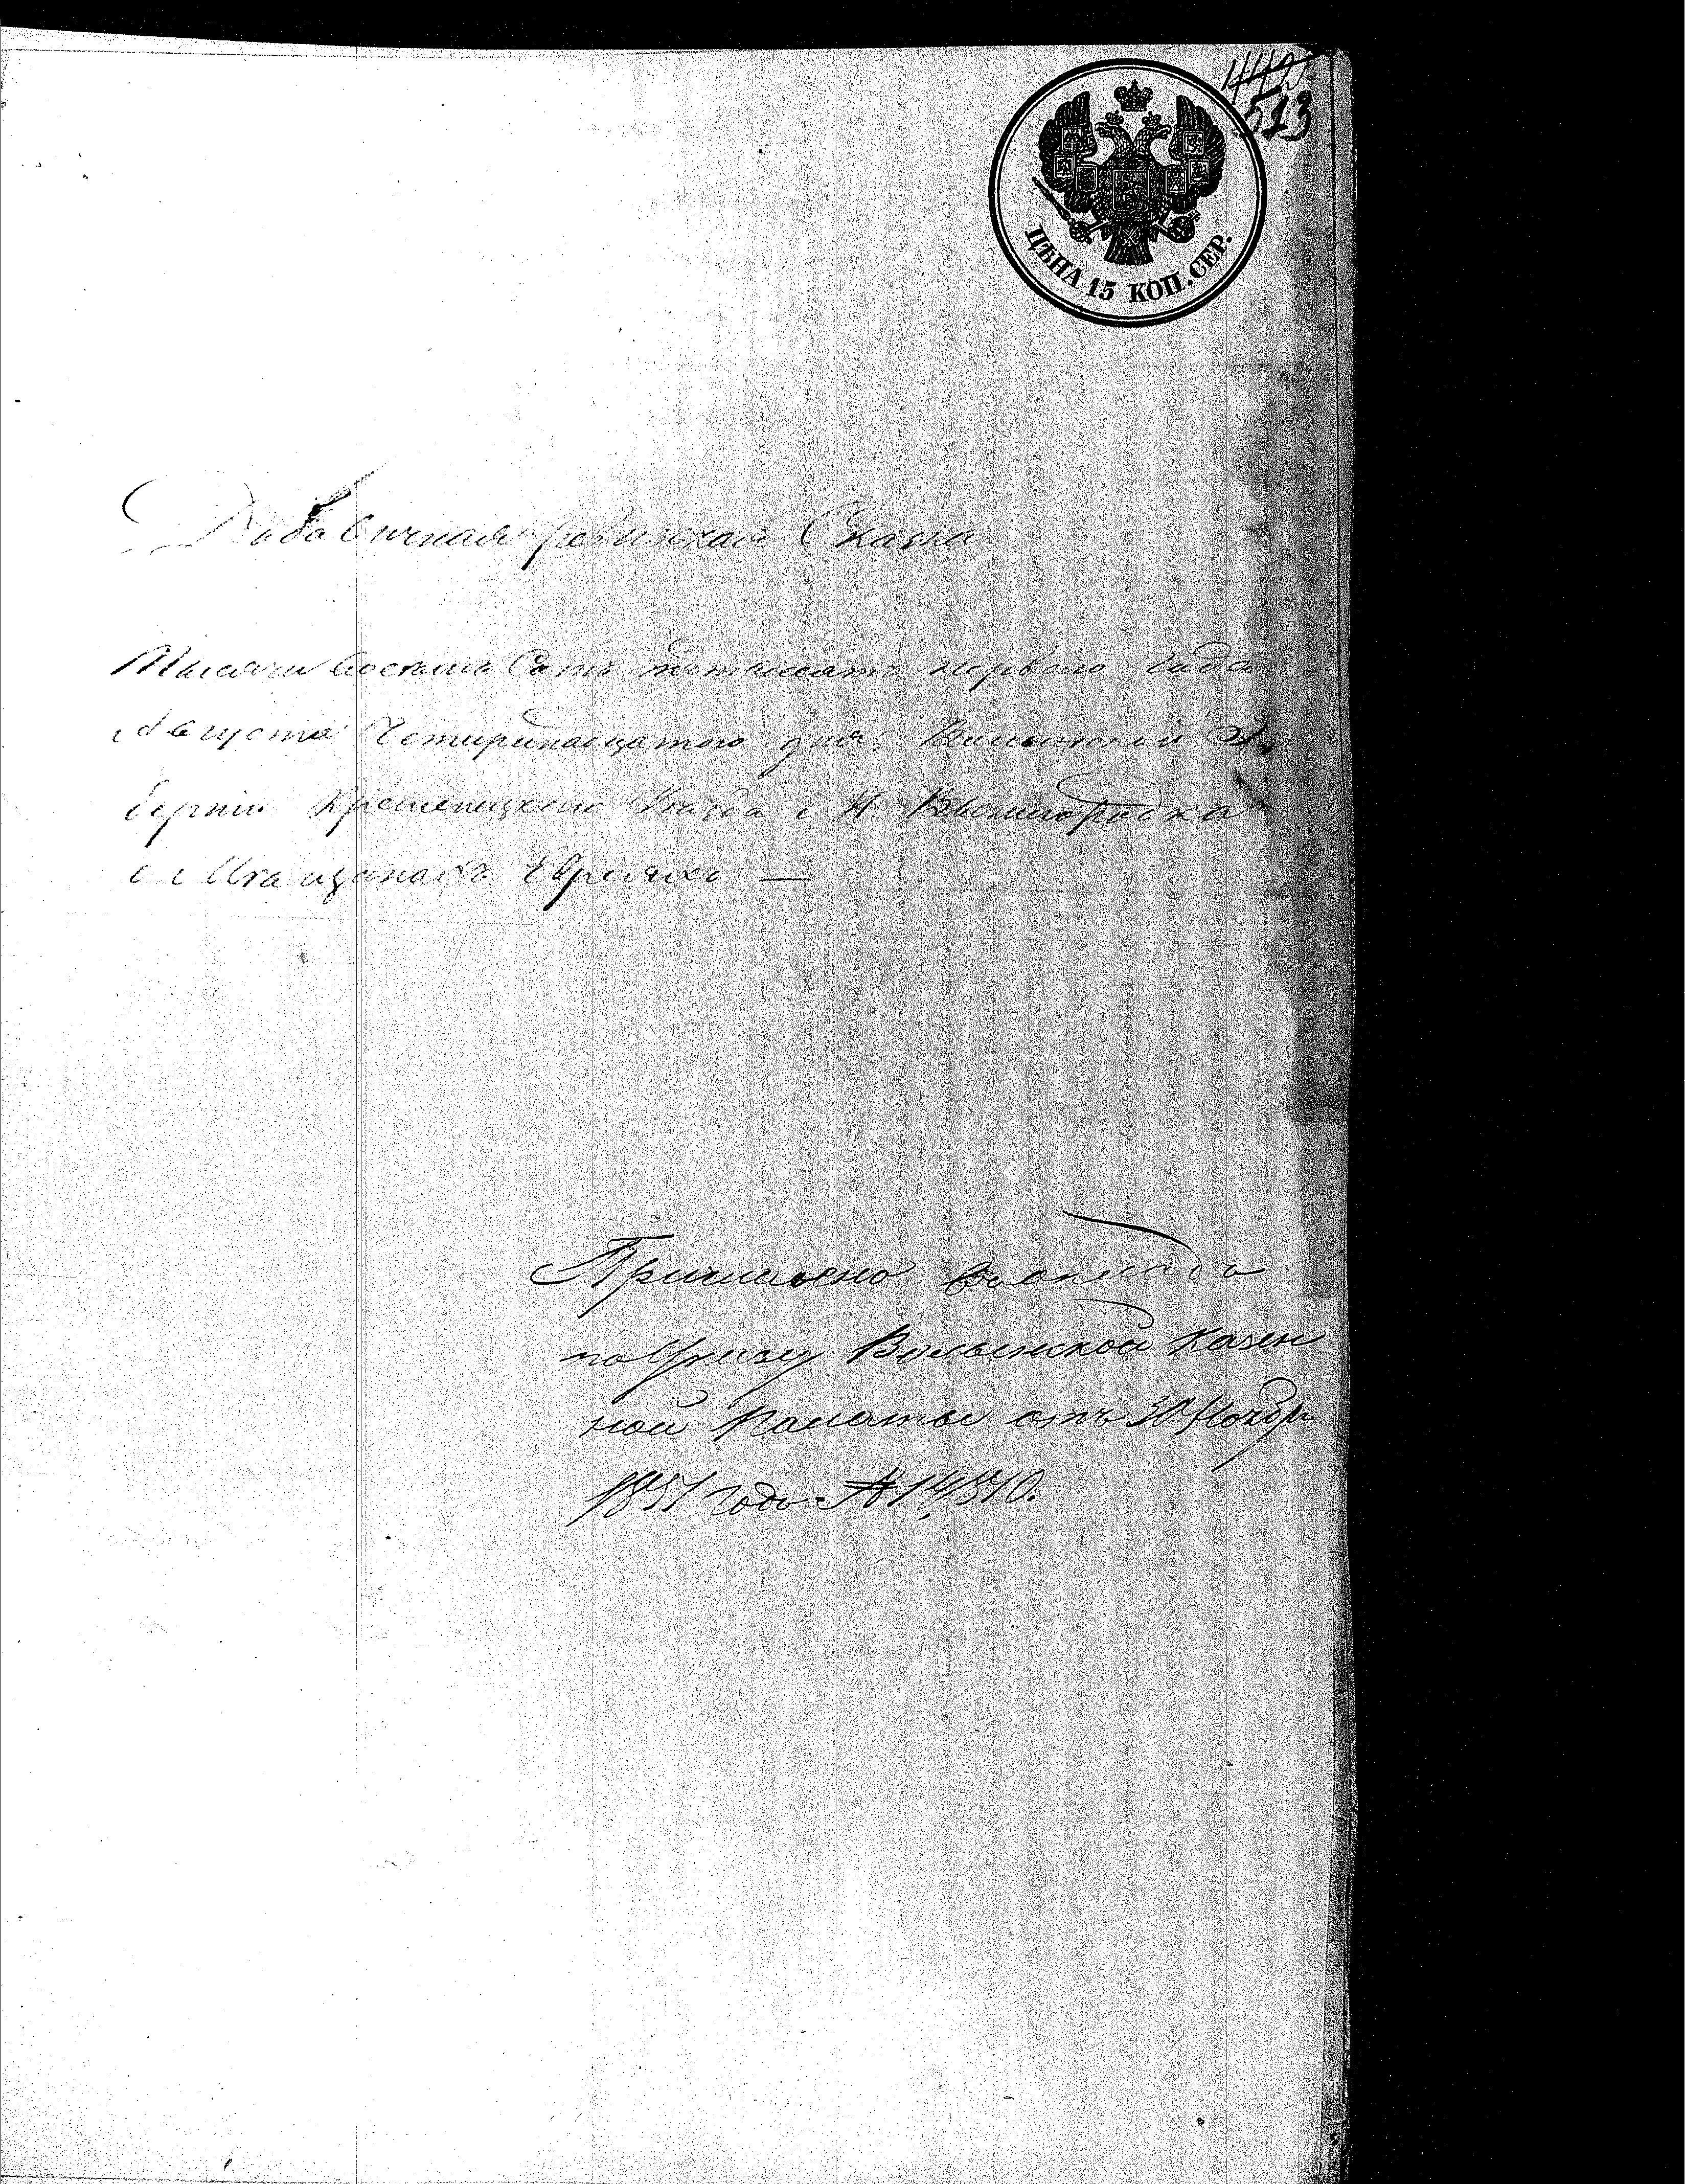 442
513
ЦѢНА 15 КОП. СЕР.
Добавочная ревизская Сказка
Тысяча восемь Сотъ пятьдесятъ перваго года
Августа Четирнадцатого дня. Волынской Гу
берніи Кременецкого Уѣзда М. Вышгородка
о Мѣщанахъ Евреяхъ —
Причислено въ окладъ
по Указу Волынской Казен
ной Палаты отъ 30 Ноябр
1851 года № 14510.